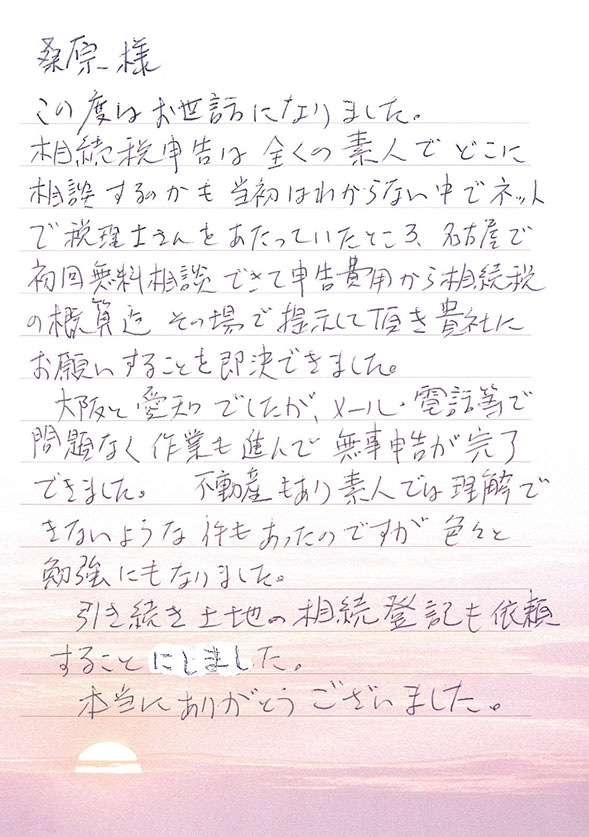 桑原様
この度はお世話になりました。
相続税申告は全くの素人でどこに
相談するのかも当初はわからない中でネット
で税理士さんをあたっていたところ、名古屋で
初回無料相談できて申告費用から相続税
の概算迄その場で提示して頂き貴社に
お願いすることを即決できました。
大阪と愛知でしたが、メール・電話等で
問題なく作業も進んで無事申告が完了
できました。 不動産もあり素人では理解で
きないような件もあったのですが色々と
勉強にもなりました。
引き続き土地の相続登記も依頼
することにしました。
本当にありがとうございました。